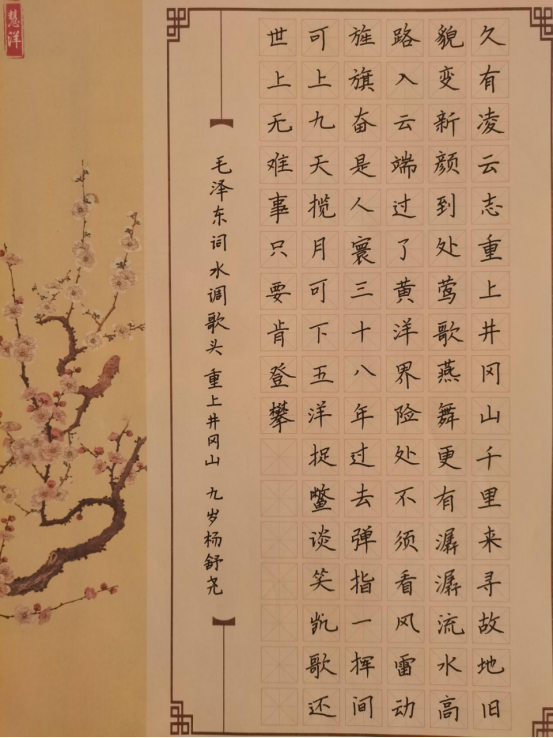 久有凌云志重上井冈山千里来寻故地旧
貌变新颜到处莺歌燕舞更有潺潺流水高
路入云端过了黄洋界险处不须看风雷动
旌旗奋是人寰三十八年过去弹指一挥间
可上九天揽月可下五洋捉鳖谈笑凯歌还
世上无难事只要肯登攀
毛泽东词 水调歌头 重上井冈山 九岁杨舒尧
慧洋